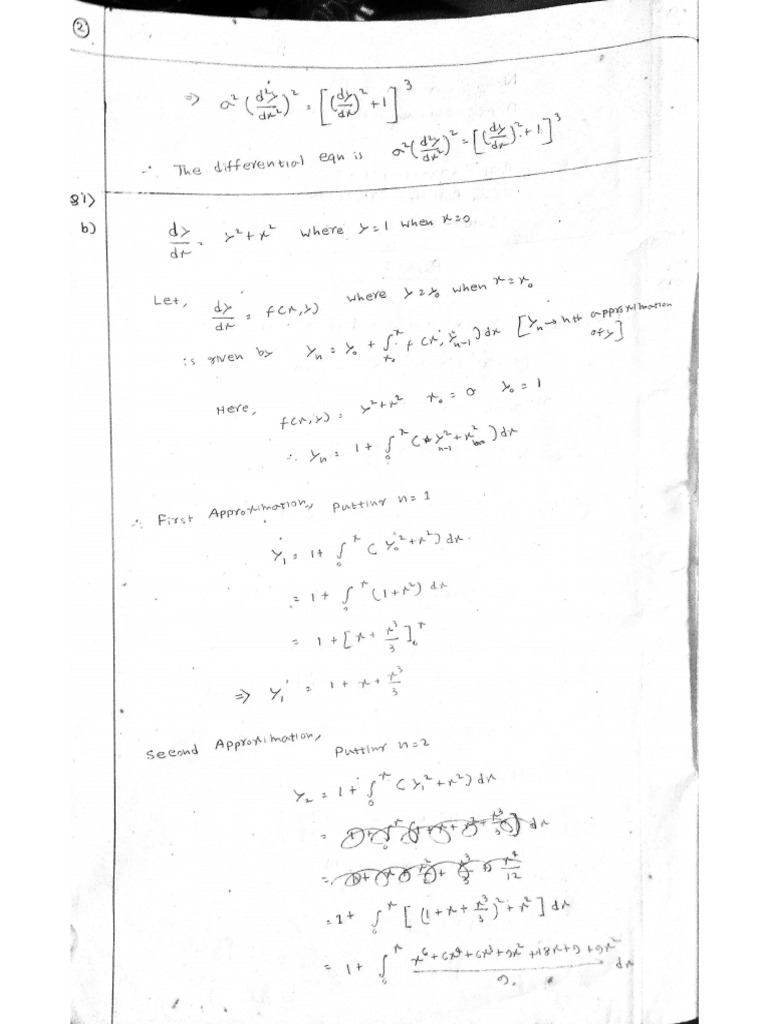 ②
⇒ a² (d²y/dx²)² = [(dy/dx)² + 1]³
∴ The differential eqn is a² (d²y/dx²)² = [(dy/dx)² + 1]³
8'1>
b) dy/dx = y² + x² where y = 1 when x = 0
Let, dy/dx = f(x, y) where y = y₀ when x = x₀
is given by yₙ = y₀ + ∫ₓ₀ˣ f(x, yₙ₋₁) dx [yₙ → nth approximation of y]
Here, f(x, y) = y² + x² x₀ = 0 y₀ = 1
∴ yₙ = 1 + ∫₀ˣ (y²ₙ₋₁ + x²) dx
∴ First Approximation, Putting n = 1
y₁ = 1 + ∫₀ˣ (y₀² + x²) dx
= 1 + ∫₀ˣ (1 + x²) dx
= 1 + [x + x³/3]₀ˣ
⇒ y₁ = 1 + x + x³/3
Second Approximation, Putting n = 2
y₂ = 1 + ∫₀ˣ (y₁² + x²) dx
= 1 + ∫₀ˣ [(1 + x + x³/3)² + x²] dx
= 1 + ∫₀ˣ (x⁶ + 6x⁴ + 6x³ + 9x² + 18x + 9 + 9x²)/9 dx